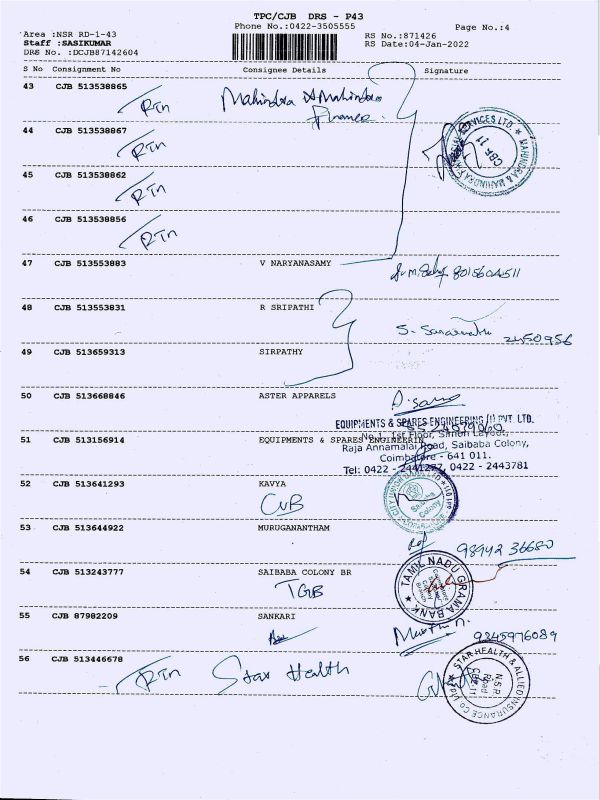 TPC/CJB DRS - P43
Phone No.:0422-3505555
Page No.:4
Area :NSR RD-1-43
RS No.:871426
Staff :SASIKUMAR
RS Date:04-Jan-2022
DRS No. :DCJB87142604
S No Consignment No Consignee Details Signature
43 CJB 513538865 Mahindra & Mahindra
RTn Finance
44 CJB 513538867
RTn
45 CJB 513538862
RTn
46 CJB 513538856
RTn
MAHINDRA & MAHINDRA SERVICES LTD.
CBE 11
47 CJB 513553883 V NARYANASAMY
48 CJB 513553831 R SRIPATHI
2450956
49 CJB 513659313 SIRPATHY
50 CJB 513668846 ASTER APPARELS
EQUIPMENTS & SPARES ENGINEERING (I) PVT. LTD.
51 CJB 513156914 EQUIPMENTS & SPARES ENGINEERIN
No.1, 1st Floor, Simon Layout,
Raja Annamalai Road, Saibaba Colony,
Coimbatore - 641 011.
Tel: 0422 - 2441277, 0422 - 2443781
52 CJB 513641293 KAVYA
CUB
CITY UNION BANK LTD
Saibaba Colony
53 CJB 513644922 MURUGANANTHAM
98942 36680
54 CJB 513243777 SAIBABA COLONY BR
TGB
TAMIL NADU GRAMA BANK
55 CJB 87982209 SANKARI
9245976089
56 CJB 513446678
RTn Star Health
STAR HEALTH & ALLIED INSURANCE CO LTD
N.S.R. Road